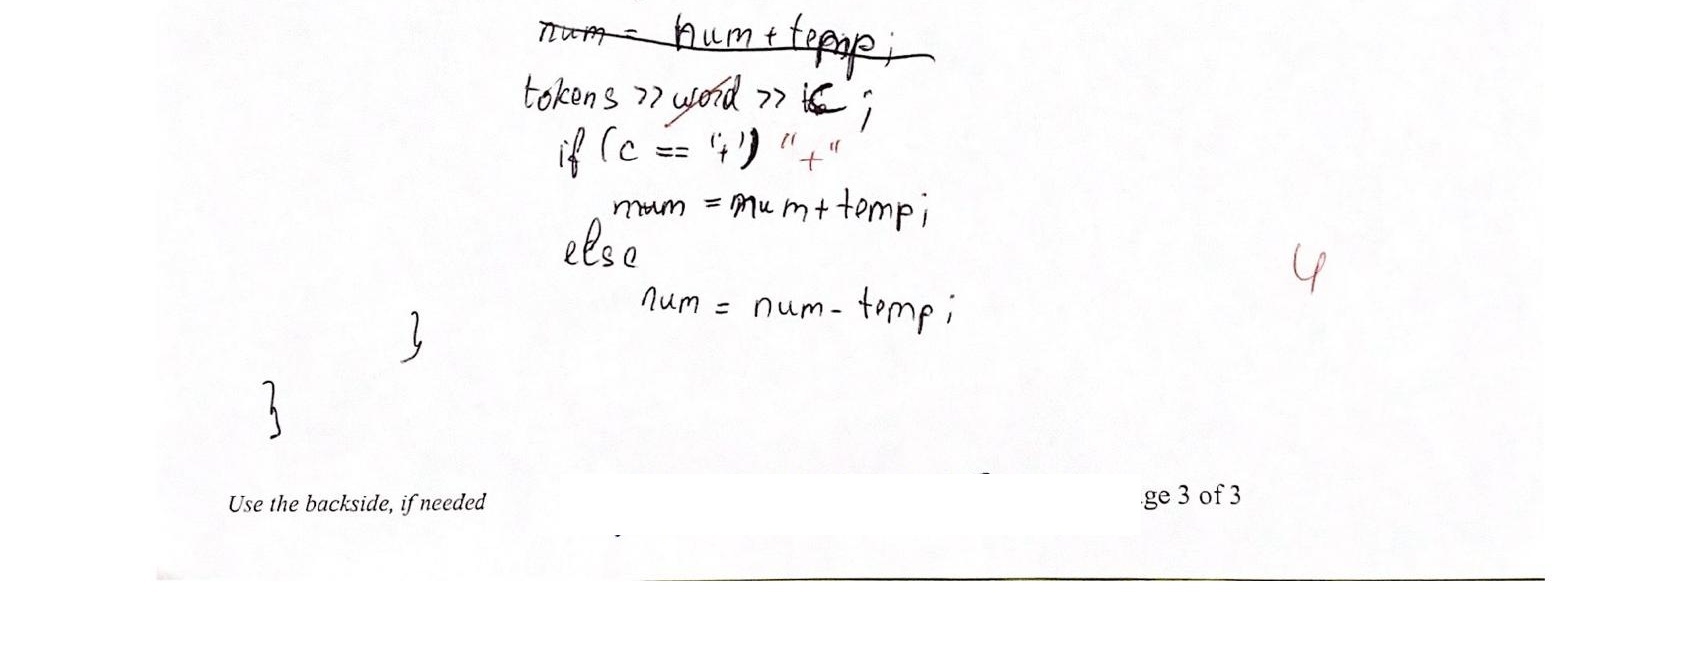 num = num + temp;
tokens >> word >> c ;
if (c == '+') "+"
num = num + temp;
else
4
num = num - temp;
}
}
Use the backside, if needed
ge 3 of 3